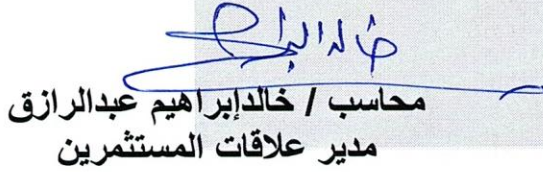 محاسب / خالدإبراهيم عبدالرازق
مدير علاقات المستثمرين